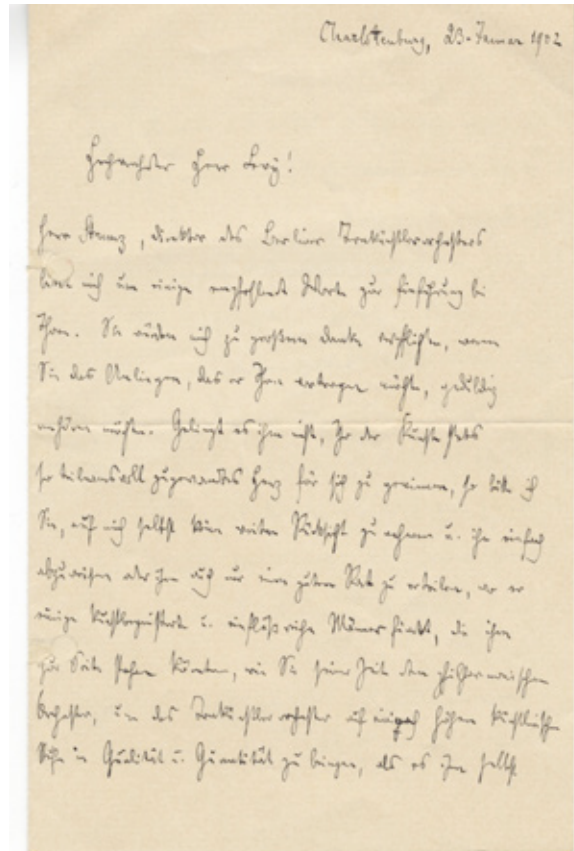 Charlottenburg, 23. Januar 1902
Hochverehrter Herr Levy!
Herr Stamz, Direktor des Berliner Tonkünstlerorchesters
bittet mich um einige empfehlende Worte zur Einführung bei
Ihnen. Sie würden mich zu großem Danke verpflichten, wenn
Sie das Anliegen, das er Ihnen vortragen möchte, geduldig
anhören möchten. Gelingt es ihm nicht, Ihr der Kunst stets
so teilnahmsvoll zugewandtes Herz für sich zu gewinnen, so bitte ich
Sie, auf mich selbst keine weitere Rücksicht zu nehmen u. ihn einfach
abzuweisen oder ihm auch nur einen guten Rat zu erteilen, wo er
einige kunstbegeisterte u. einflußreiche Männer findet, die ihm
zur Seite stehen könnten, wie Sie seiner Zeit dem philharmonischen
Orchester, um das Tonkünstlerorchester auf höhere künstlerische
Stufe in Qualität u. Quantität zu bringen, als es ihm selbst